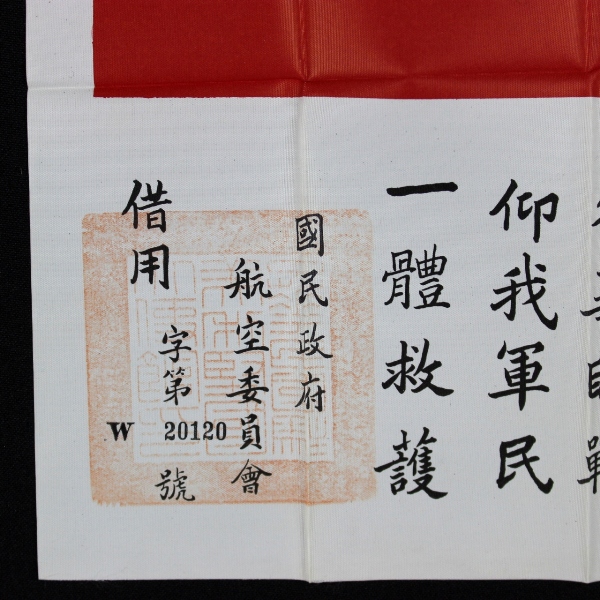 仰我軍民
一體救護
國民政府
航空委員會
借用
字第
W 20120
號